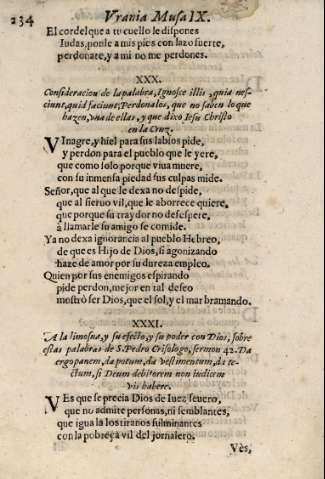 234
Vrania Musa IX.
El cordel que a tu cuello le dispones
Iudas, ponle a mis pies con lazo fuerte,
perdonate, y a mi no me perdones.
XXX.
Consideracion de la palabra, Ignosce illis, quia nes-
ciunt, quid faciunt, Perdonalos, que no saben lo que
hazen, vna de ellas, y que dixo Iesu Christo
en la Cruz.
VInagre, y hiel para sus labios pide,
y perdon para el pueblo que le yere,
que como solo porque viua muere,
con su inmensa piedad sus culpas mide.
Señor, que al que le dexa no despide,
que al sieruo vil, que le aborrece quiere,
que porque su traydor no desespere,
à llamarle su amigo se comide.
Ya no dexa ignorancia al pueblo Hebreo,
de que es Hijo de Dios, si agonizando
haze de amor por su dureza empleo.
Quien por sus enemigos espirando
pide perdon, mejor en tal deseo
mostrò ser Dios, que el sol, y el mar bramando.
XXXI.
A la limosna, y su efecto, y su poder con Dios, sobre
estas palabras de S. Pedro Crisologo, sermon 42. Da
ergo panem, da potum, da vestimentum, da te-
ctum, si Deum debitorem non iudicem
vis habere.
VEs que se precia Dios de Iuez seuero,
que no admite personas, ni semblantes,
que igua la los tiranos fulminantes
con la pobreza vil del jornalero.
Vès,